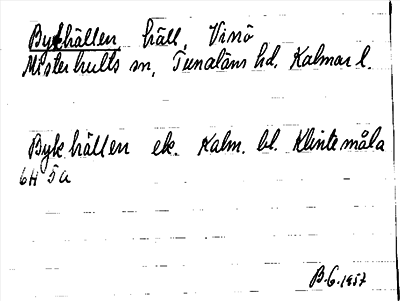 Bykhällen, häll, Vinö
Misterhults sn, Tunaläns hd, Kalmar l.
Bykhällen ek. Kalm. bl. Klintemåla
6H 5a
B.G. 1957